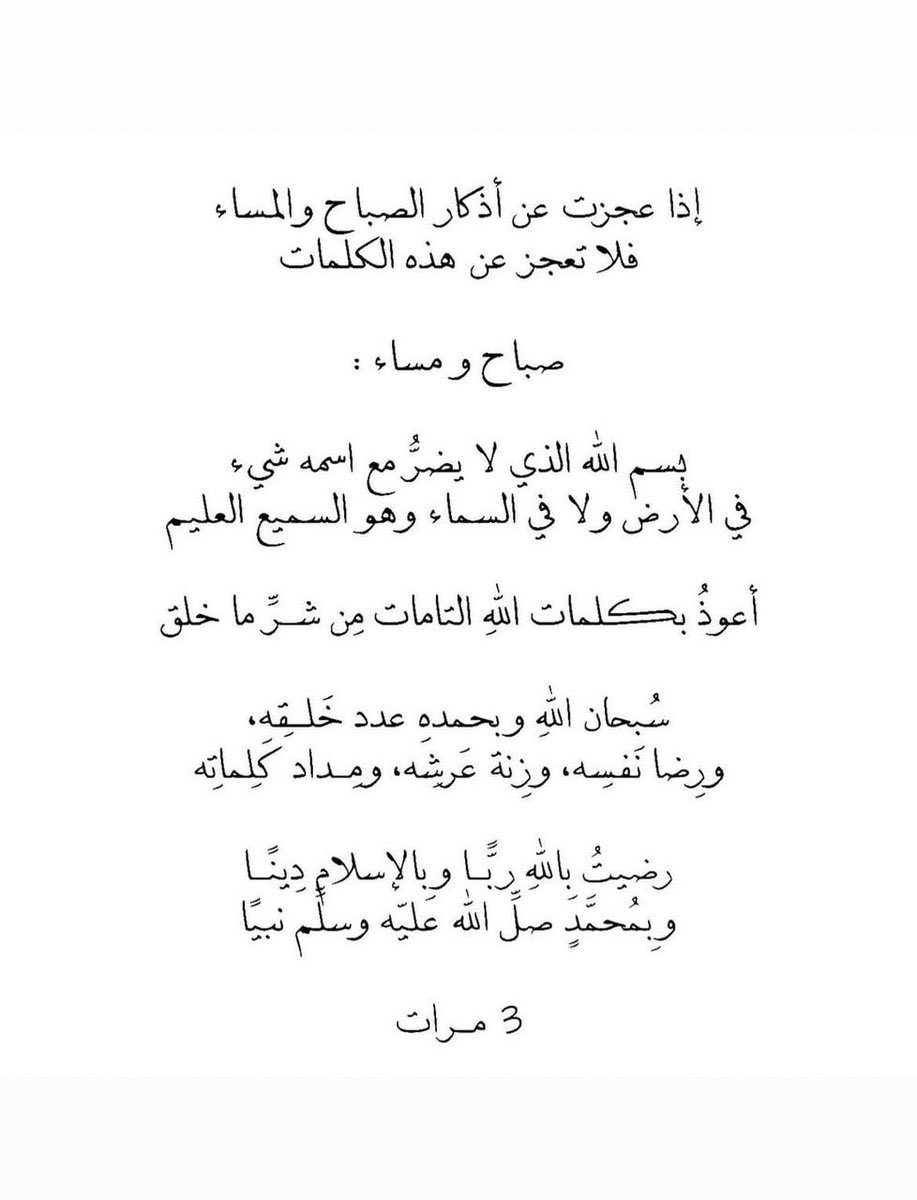 إذا عجزت عن أذكار الصباح والمساء
فلا تعجز عن هذه الكلمات
صباح و مساء :
بِسم الله الذي لا يضرُّ مع اسمه شيء
في الأرض ولا في السماء وهو السميع العليم
أعوذُ بكلمات اللهِ التامات مِن شـرِّ ما خلق
سُبحان اللهِ وبحمدهِ عدد خَلـقِهِ،
ورِضا نَفسِه، وزِنة عَرشِه، ومِـداد كَلِماتِه
رضيتُ بِاللهِ رِبًّـا وبِالإسلامِ دِينًـا
وبِمُحمَّدٍ صلِّ الله عليّه وسلَّم نبيًا
3 مـرات